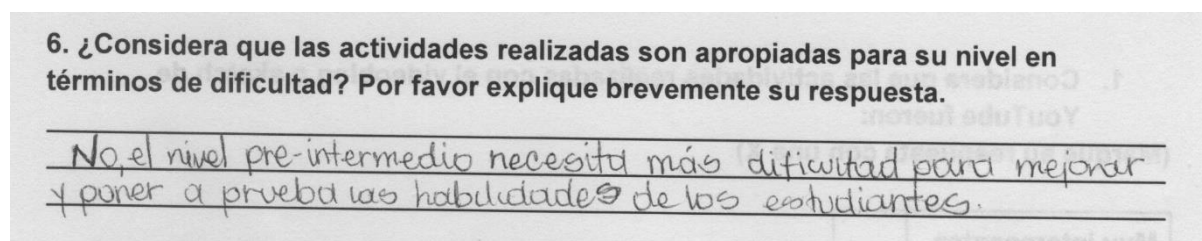 6. ¿Considera que las actividades realizadas son apropiadas para su nivel en
términos de dificultad? Por favor explique brevemente su respuesta.
No, el nivel pre-intermedio necesita más dificultad para mejorar
y poner a prueba las habilidades de los estudiantes.